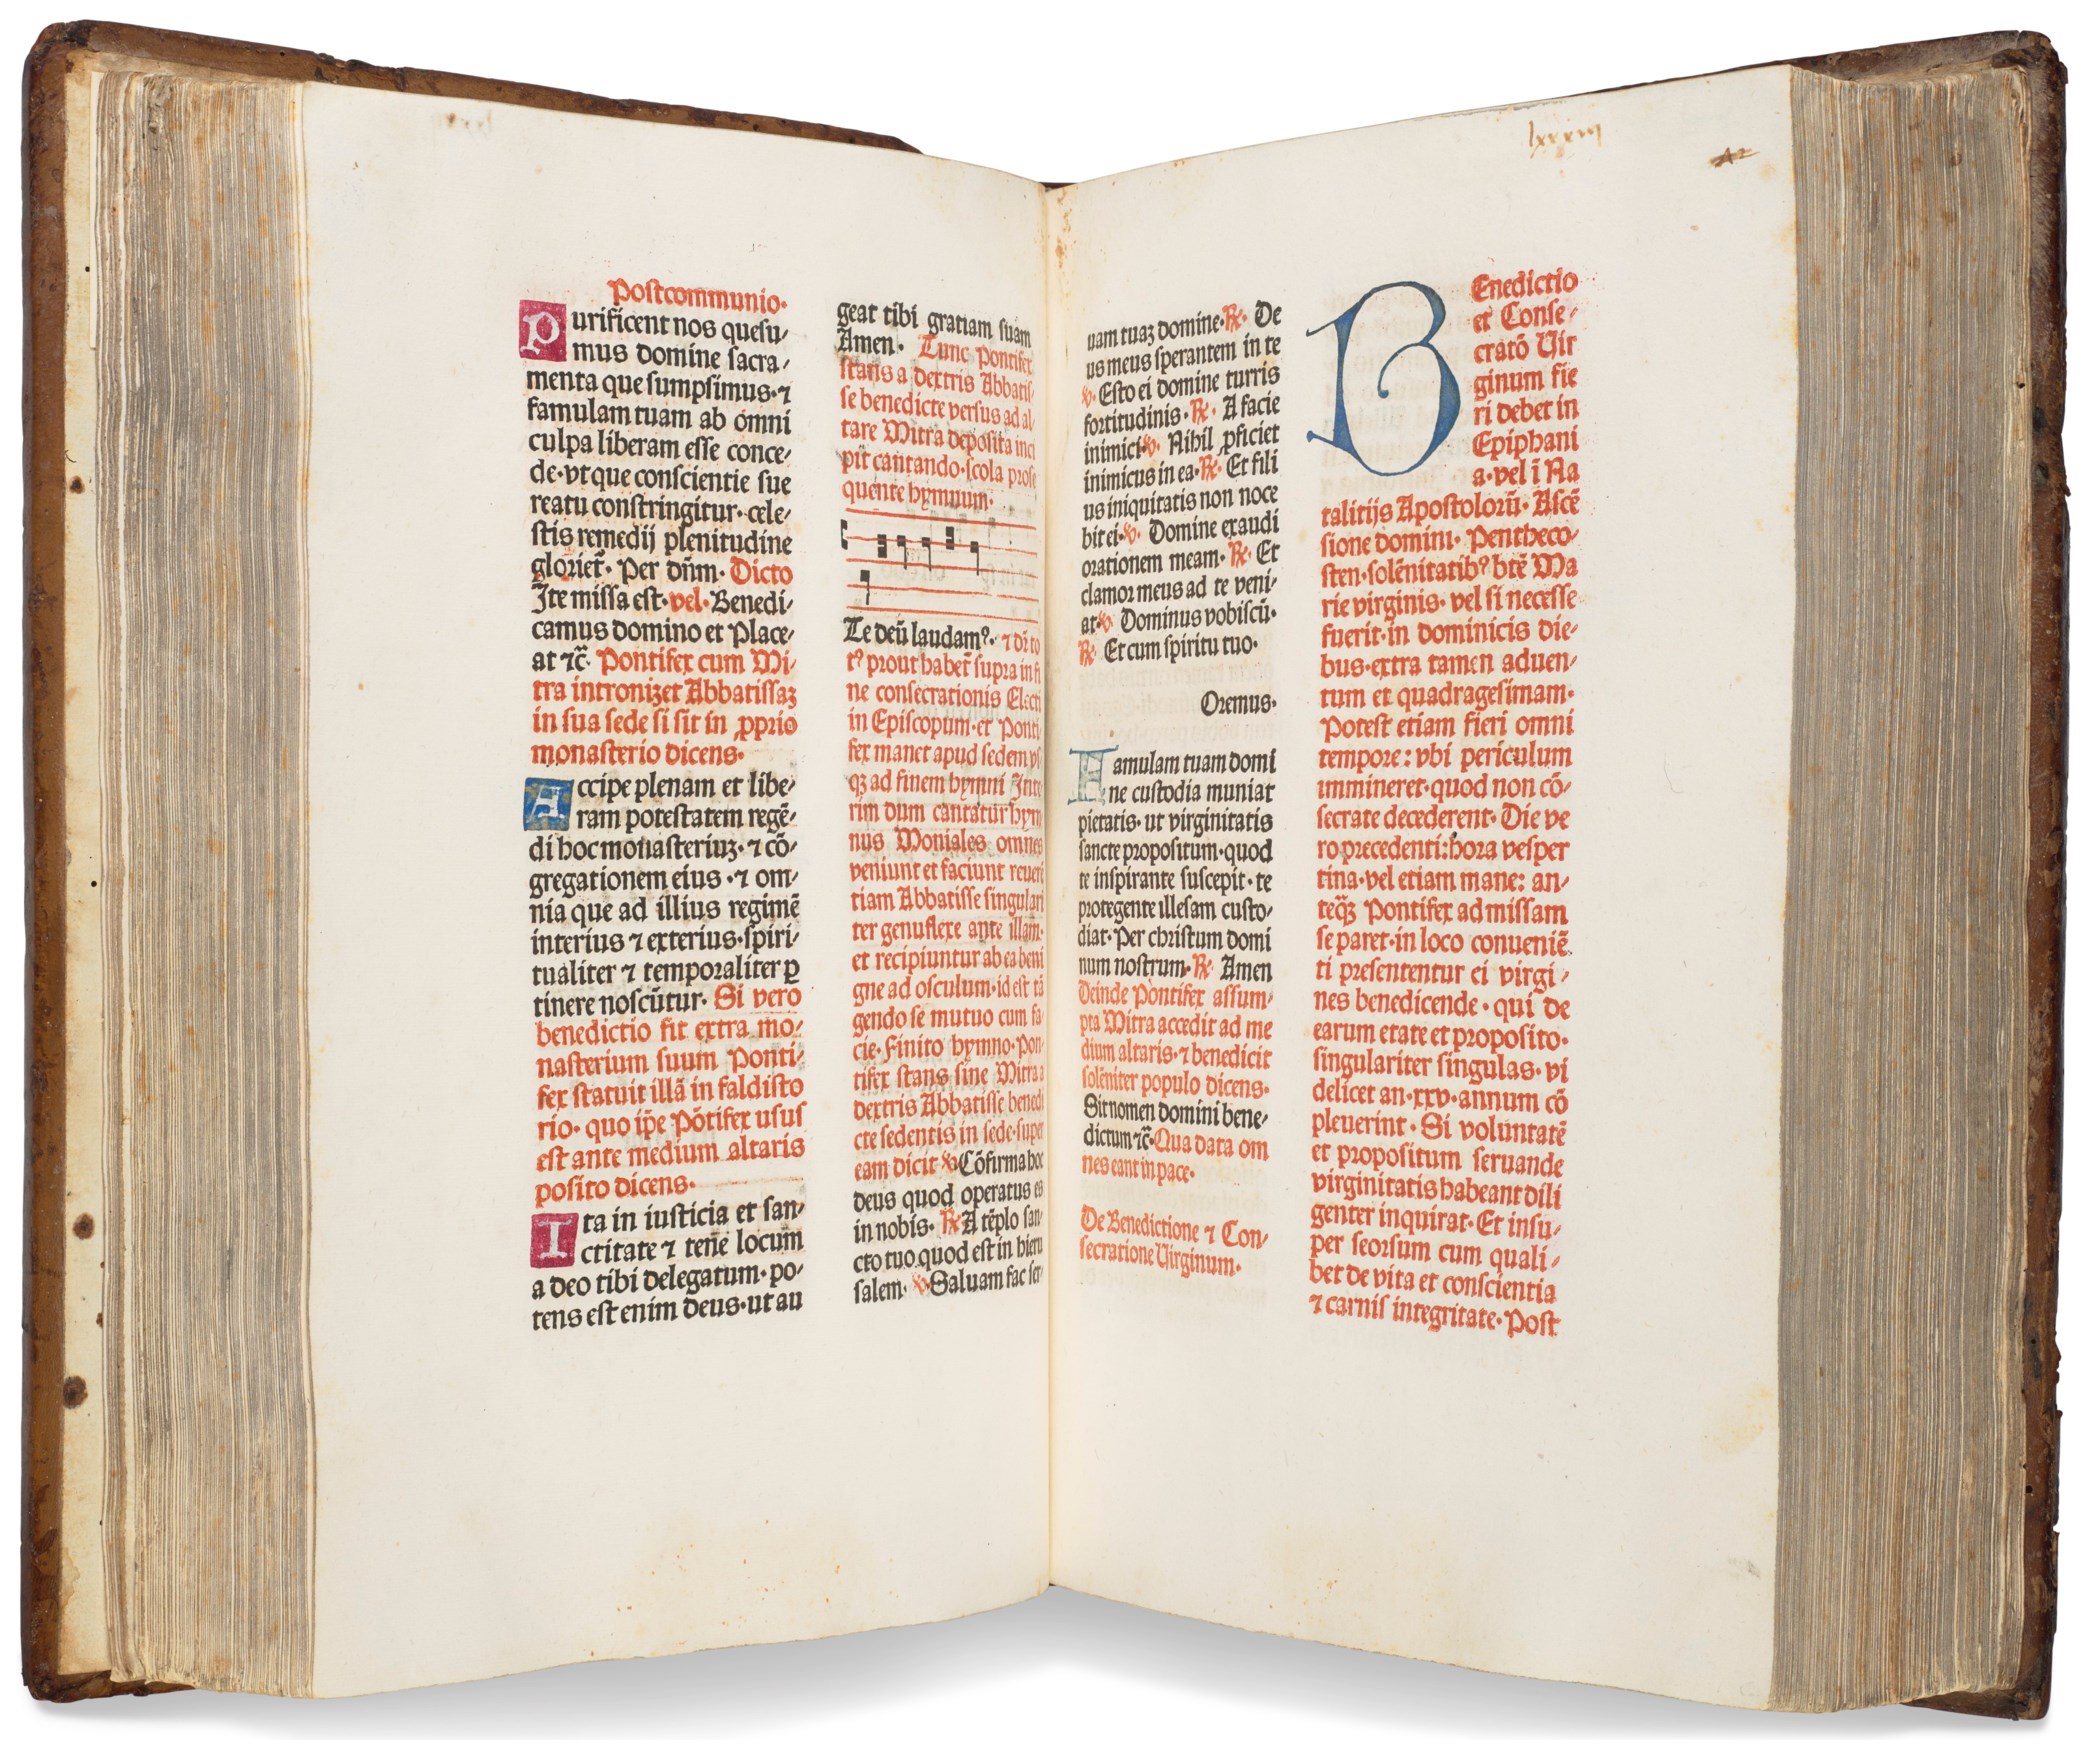 Postcommunio·
Purificent nos quesu⸗
mus domine sacra⸗
menta que sumpsimus·⁊
famulam tuam ab omni
culpa liberam esse conce⸗
de·vt que conscientie sue
reatu constringitur·cele⸗
stis remedij plenitudine
glorieť· Per dñm· Dicto
Ite missa est·vel·Benedi⸗
camus domino et Place⸗
at ⁊c̃· Pontifex cum Mi⸗
tra intronizet Abbatissaꝫ
in sua sede si sit in ꝓprio
monasterio dicens·
Accipe plenam et libe⸗
ram potestatem regẽ⸗
di hoc monasteriuꝫ·⁊ cõ⸗
gregationem eius·⁊ om⸗
nia que ad illius regimẽ
interius ⁊ exterius·spiri⸗
tualiter ⁊ temporaliter ꝑ
tinere noscũtur· Si vero
benedictio fit extra mo⸗
nasterium suum Ponti⸗
fex statuit illã in faldisto
rio· quo ip̃e Põtifex usus
est ante medium altaris
posito dicens·
Ita in iusticia et san⸗
ctitate ⁊ tene locum
a deo tibi delegatum·po⸗
tens est enim deus·ut au
geat tibi gratiam suam
Amen· Tunc Pontifex
stans a dextris Abbatis⸗
se benedicte versus ad al⸗
tare Mitra deposita inci
pit cantando·scola prose
quente hymnum·
Te deũ laudamꝰ· ⁊ dr̃ to
tꝰ prout habeť supra in fi
ne consecrationis Electi
in Episcopum·et Ponti
fex manet apud sedem vs
qꝫ ad finem hymni Inte
rim dum cantatur hym
nus Moniales omnes
veniunt et faciunt reuerẽ
tiam Abbatisse singulari
ter genuflexe ante illam·
et recipiuntur ab ea beni
gne ad osculum·id est tã
gendo se mutuo cum fa
cie·Finito hymno·Pon
tifex stans sine Mitra a
dextris Abbatisse benedi
cte sedentis in sede·super
eam dicit ℣·Cõfirma hoc
deus quod operatus es
in nobis· ℟ A tẽplo san⸗
cto tuo quod est in hieru
salem· ℣·Saluam fac ser⸗
uam tuaꝫ domine·℟· De
us meus sperantem in te
℣·Esto ei domine turris
fortitudinis·℟· A facie
inimici·℣· Nihil ꝓficiet
inimicus in ea·℟· Et fili
us iniquitatis non noce
bit ei·℣· Domine exaudi
orationem meam·℟· Et
clamor meus ad te veni⸗
at·℣· Dominus vobiscũ·
℟· Et cum spiritu tuo·
Oremus·
Famulam tuam domi
ne custodia muniat
pietatis·ut virginitatis
sancte propositum·quod
te inspirante suscepit·te
protegente illesam custo⸗
diat·Per christum domi
num nostrum·℟· Amen
Deinde Pontifex assum⸗
pta Mitra accedit ad me
dium altaris·⁊ benedicit
solẽniter populo dicens·
Sit nomen domini bene⸗
dictum ⁊c̃·Qua data om
nes eant in pace·
De Benedictione ⁊ Con⸗
secratione Virginum·
lxxxiij
BEnedictio
et Conse⸗
cratõ Vir
ginum fie
ri debet in
Epiphani
a·vel ĩ Na
talitijs Apostolorũ· Ascẽ
sione domini· Pentheco⸗
sten·solẽnitatibꝰ btẽ Ma
rie virginis· vel si necesse
fuerit·in dominicis die⸗
bus·extra tamen aduen⸗
tum et quadragesimam·
Potest etiam fieri omni
tempore: vbi periculum
immineret·quod non cõ⸗
secrate decederent· Die ve
ro precedenti:hora vesper
tina·vel etiam mane: an⸗
teq̃ꝫ Pontifex ad missam
se paret·in loco conueniẽ
ti presententur ei virgi⸗
nes benedicende·qui de
earum etate et proposito·
singulariter singulas·vi
delicet an·xxv·annum cõ
pleuerint· Si voluntatẽ
et propositum seruande
virginitatis habeant dili
genter inquirat· Et insu⸗
per seorsum cum quali⸗
bet de vita et conscientia
⁊ carnis integritate· Post